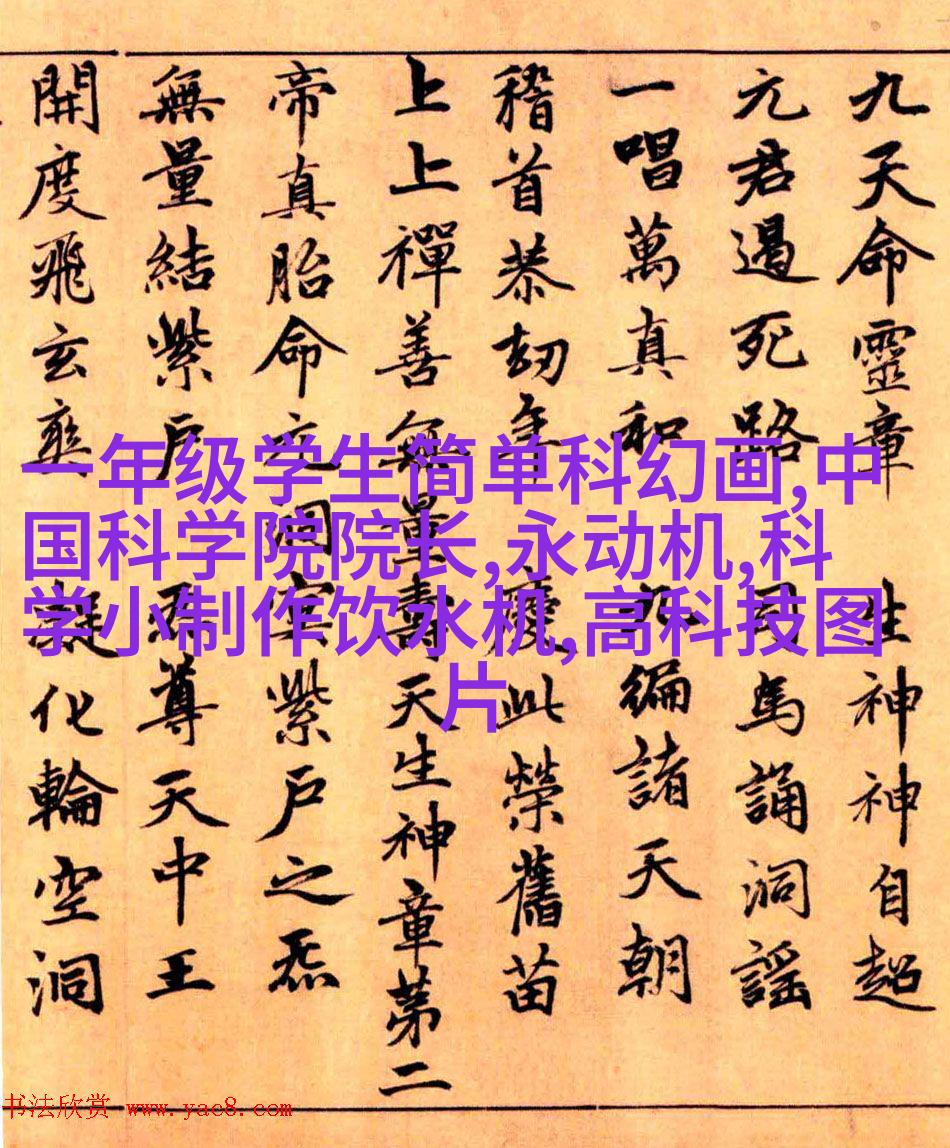 九天命靈章 生神神自超
元君遏死路 司馬誦洞謠
一唱萬真和 九編諸天朝
稽首恭劫年 慶此榮舊苗
上上禪善無量壽天生神章第二
帝真胎命元洞紫戶之炁
無量結紫戶 炁尊天中王
開度飛玄爽 凝化輪空洞
一年级学生简单科幻画,中
国科学院院长,永动机,科
学小制作饮水机,高科技图
片
书法欣赏 www.yac8.com